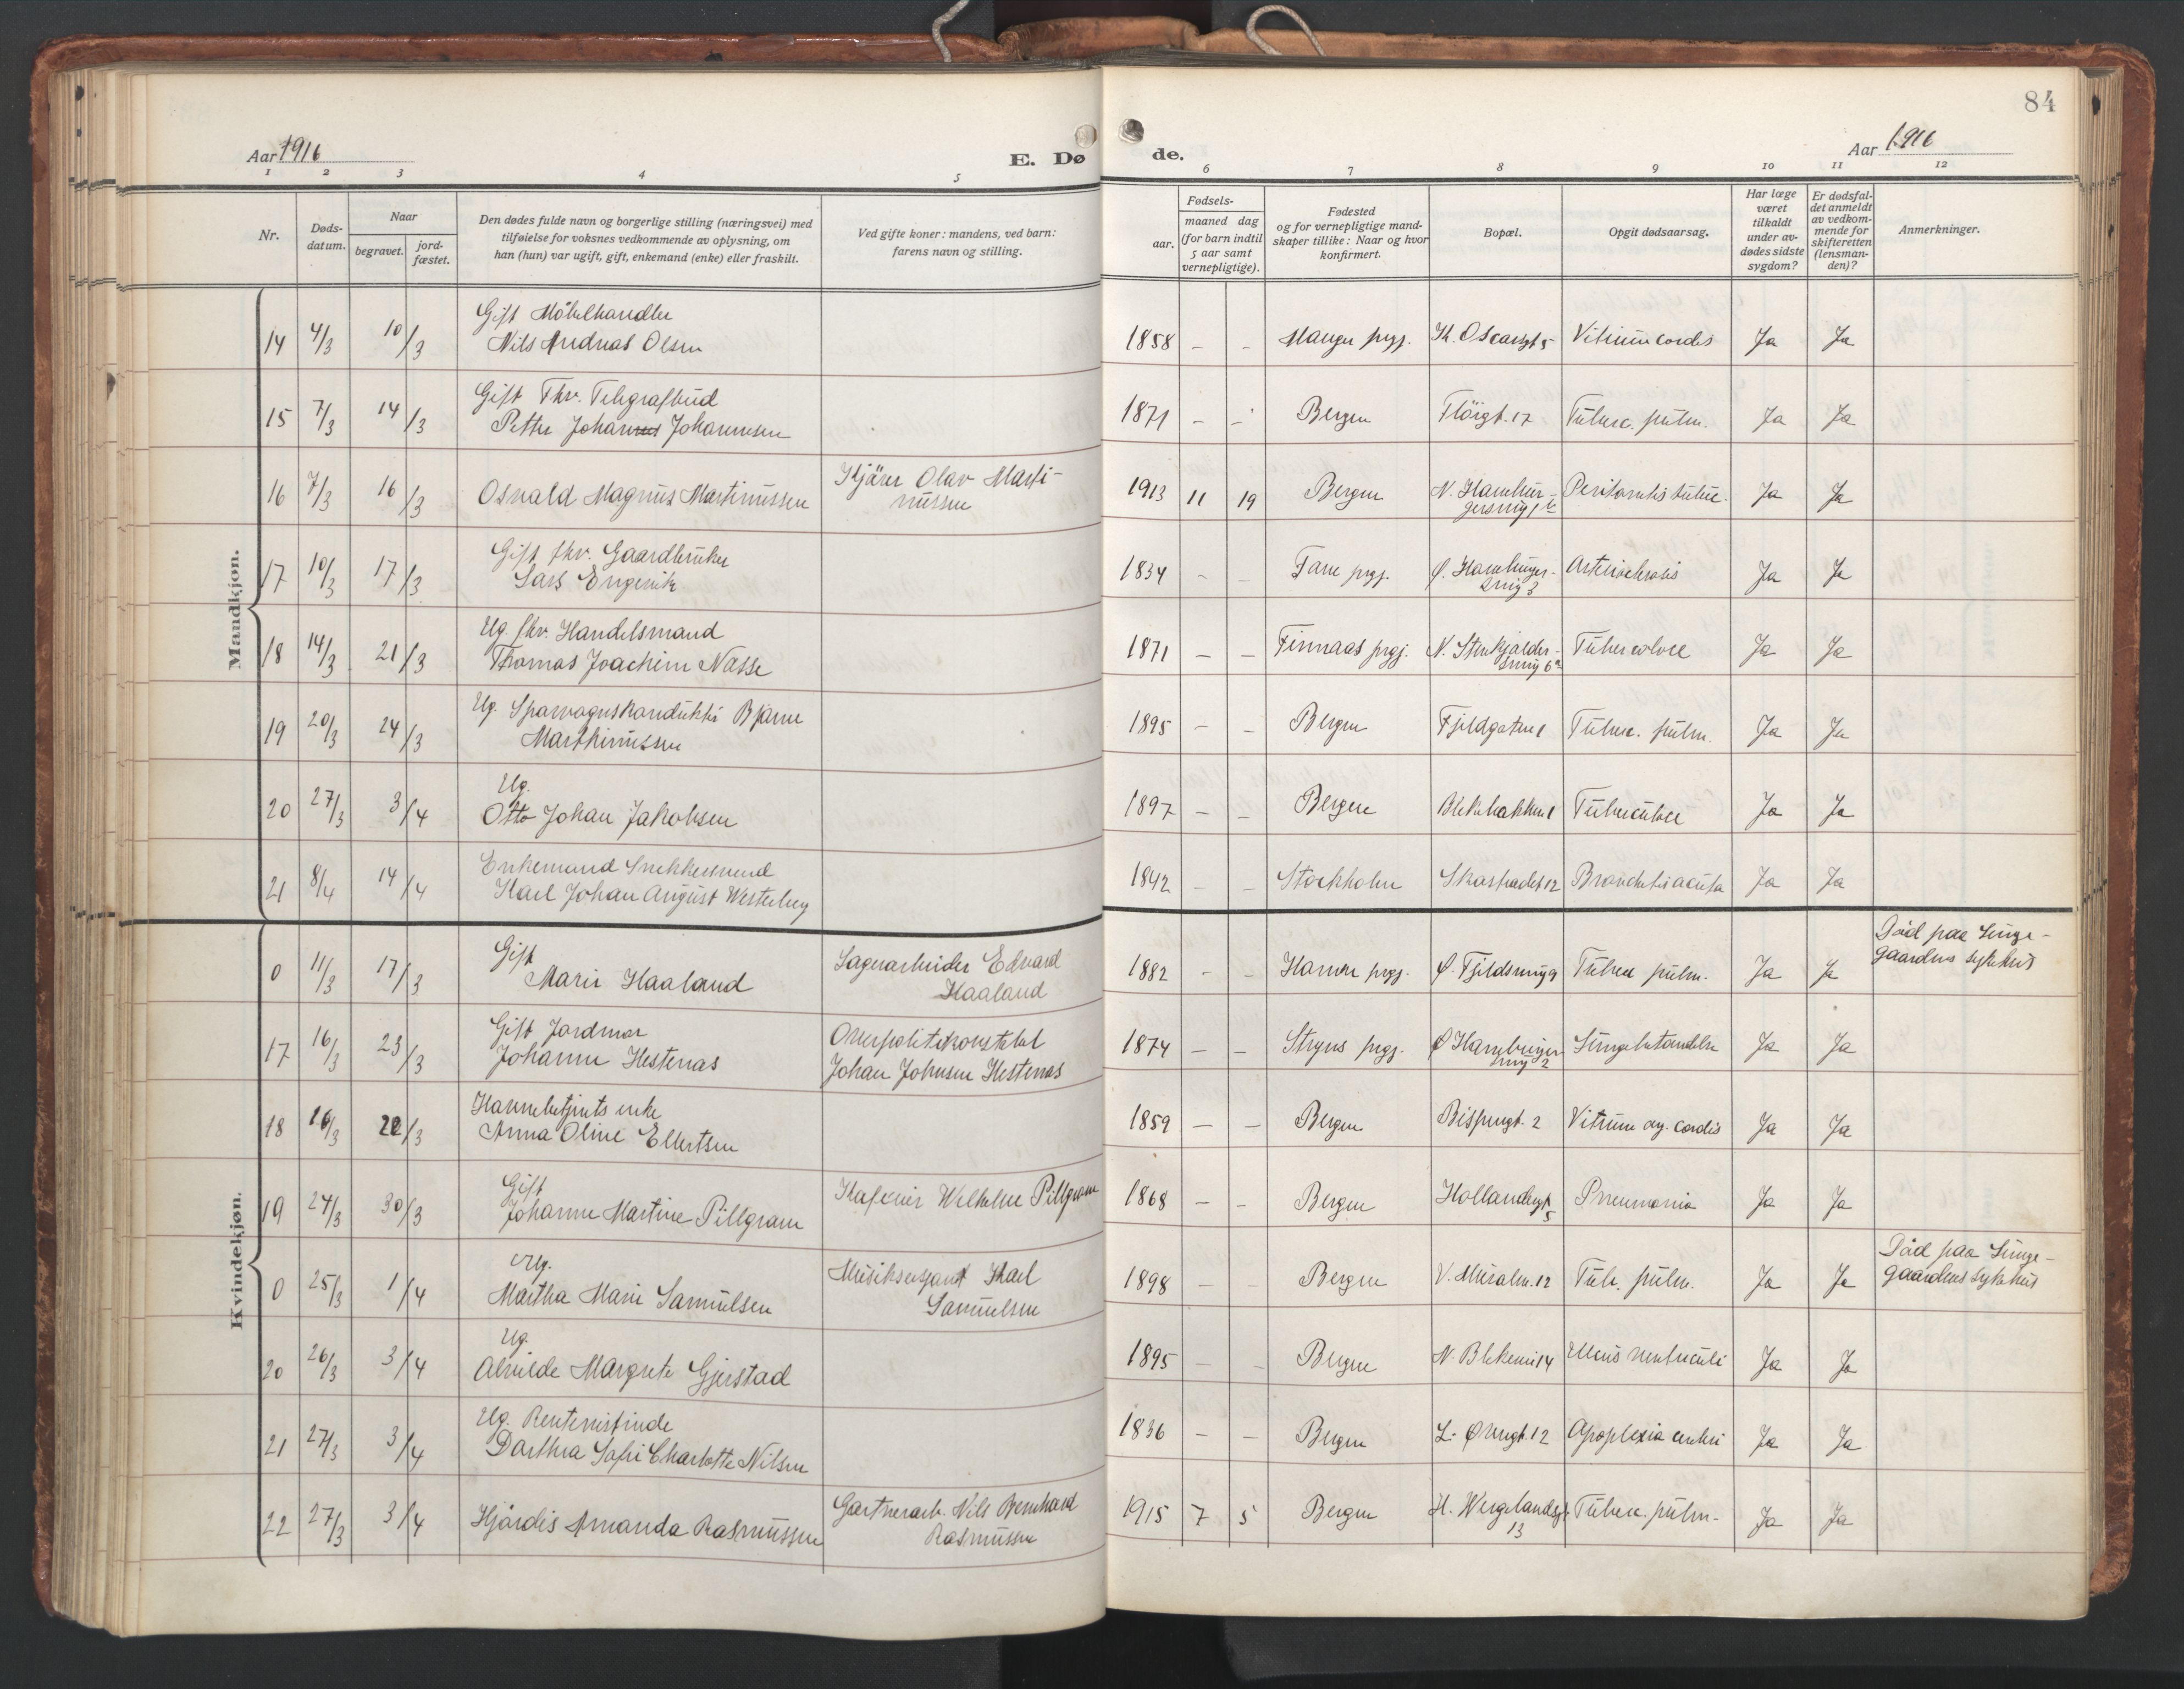 84
Aar 1916
E. Dø
de.
Aar 1916
1 2 3 4 5 6 7 8 9 10 11 12
Nr.
Døds-
datum.
Naar
begravet.
jord-
fæstet.
Den dødes fulde navn og borgerlige stilling (næringsvei) med
tilføielse for voksnes vedkommende av oplysning, om
han (hun) var ugift, gift, enkemand (enke) eller fraskilt.
Ved gifte koner: mandens, ved barn:
farens navn og stilling.
Fødsels-
aar.
maaned dag
(for barn indtil
5 aar samt
vernepligtige).
Fødested
og for vernepligtige mand-
skaper tillike: Naar og hvor
konfirmert.
Bopæl.
Opgit dødsaarsag.
Har læge
været
tilkaldt
under av-
dødes sidste
sygdom?
Er dødsfal-
det anmeldt
av vedkom-
mende for
skifteretten
(lensman-
den)?
Anmerkninger.
Mandkjøn.
14 4/3 10/3
Gift Möbelhandler
Nils Andreas Olsen
1858 – – Manger prgj. K. Oscarsgt 5 Vitium cordis Ja Ja
15 7/3 14/3
Gift Fhv. Telegrafbud
Petter Johannes Johannesen
1871 – – Bergen Fløigt. 17 Tuberc. pulm. Ja Ja
16 7/3 16/3
Osvald Magnus Martinussen
Kjörer Olav Marti-
nussen
1913 11 19 Bergen N. Hambur-
gersmug 1 Peritonitis tuberc. Ja Ja
17 10/3 17/3
Gift fhv. Gaardbruker
Lars Engevik
1834 – – Fane prgj. Ø. Hamburger-
smug 3 Arteriosclerosis Ja Ja
18 14/3 21/3
Ug. fhv. Handelsmand
Thomas Joachim Næsse
1871 – – Finnaas prgj. N. Stenkjælder-
smug 6a Tuberculose Ja Ja
19 20/3 24/3
Ug. Sporvognskonduktör Bjarne
Marthinussen
1895 – – Bergen Fjeldgaten 1 Tuberc. pulm. Ja Ja
20 27/3 3/4
Ug.
Otto Johan Jakobsen
1897 – – Bergen Blekebakken 1 Tuberculose Ja Ja
21 8/4 14/4
Enkemand Snekkersvend
Karl Johan August Westerberg
1842 – – Stockholm Skostrædet 12 Bronchitis acuta Ja Ja
Kvindekjøn.
0 11/3 17/3
Gift
Marie Haaland
Lagerarbeider Edvard
Haaland
1882 – – Hamre prgj. Ø. Fjeldsmug 9 Tuberc pulm. Ja Ja
Död paa Lunge-
gaardens sykehus
17 16/3 23/3
Gift Jordmor
Johanne Hestenæs
Overpolitikonstabel
Johan Johnsen Hestenæs
1874 – – Stryns prgj. Ø Hamburger-
smug 2 Lungebetændelse Ja Ja
18 16/3 22/3
Havnebetjents enke
Anna Oline Ellertsen
1859 – – Bergen Bispengt. 2 Vitium org. cordis Ja Ja
19 24/3 30/3
Gift
Johanne Martine Pillgram
Wilhelm Pillgram
1868 – – Bergen Hollændergt
5 Pneumonia Ja Ja
0 25/3 1/4
Ug.
Martha Marie Samuelsen
Musiksersjant Karl
Samuelsen
1898 – – Bergen V. Muralm. 12 Tub. pulm. Ja Ja
Död paa Lunge-
gaardens sykehus
20 26/3 3/4
Ug.
Alvilde Margrete Gjerstad
1895 – – Bergen N. Blekevei 14 Ulcus ventriculi Ja Ja
21 27/3 3/4
Ug. Rentenistinde
Dorthea Sofie Charlotte Nilsen
1836 – – Bergen L. Øvregt. 12 Apoplexia cerebri Ja Ja
22 27/3 3/4
Hjördis Amanda Rasmussen
Gartnerarb. Nils Bernhard
Rasmussen
1915 7 5 Bergen H. Wergelandsgt
13 Tuberc. pulm. Ja Ja